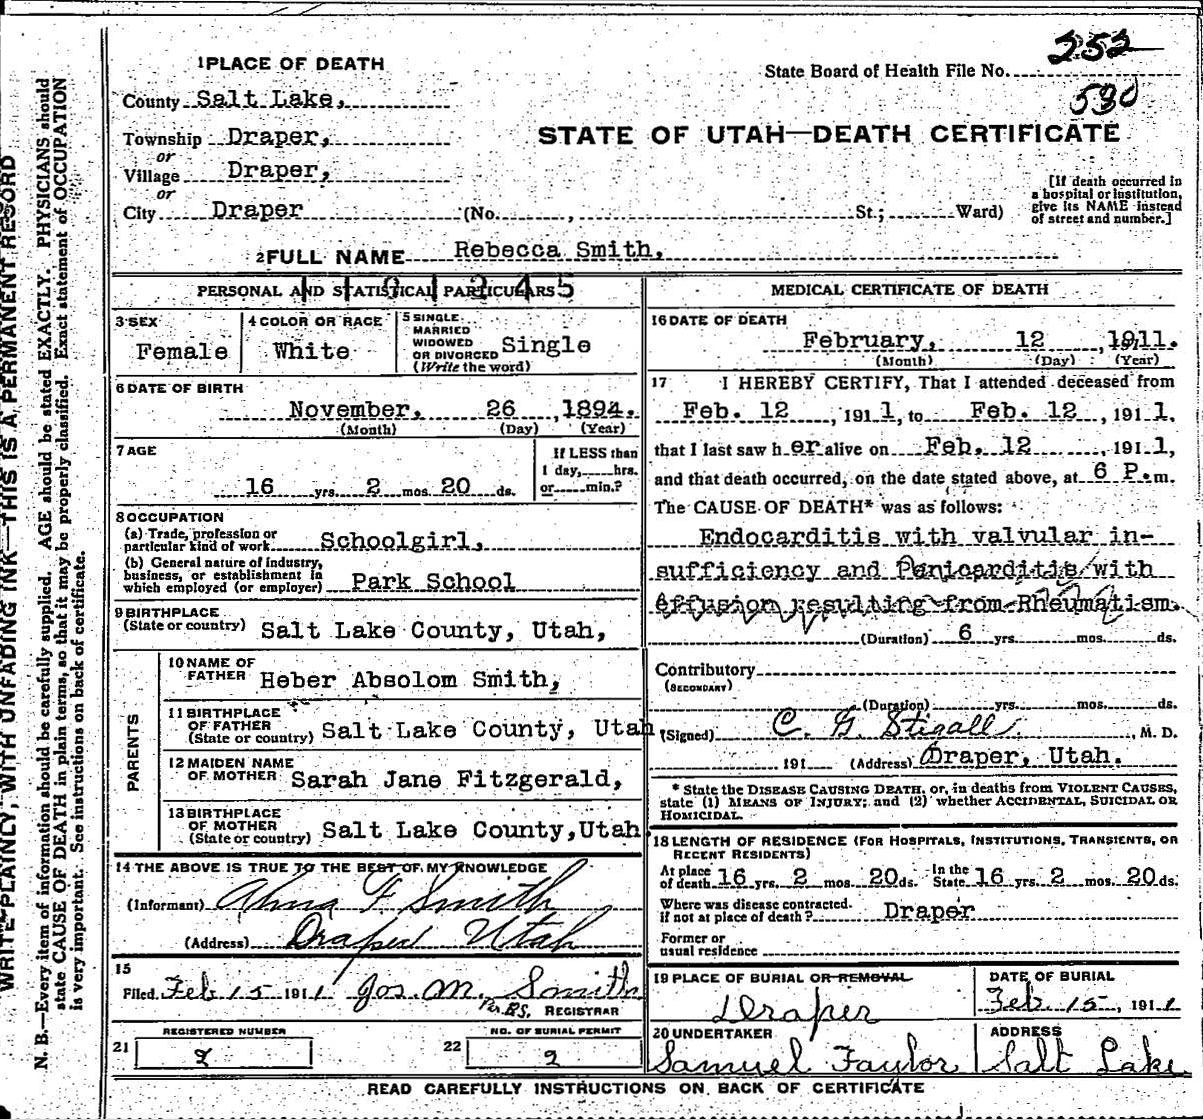 252
State Board of Health File No.
590
1 PLACE OF DEATH
County Salt Lake,
STATE OF UTAH—DEATH CERTIFICATE
Township Draper,
or
Village Draper,
or
City Draper (No. , St.; Ward)
[If death occurred in
a hospital or institution,
give its NAME instead
of street and number.]
2 FULL NAME Rebecca Smith,
PERSONAL AND STATISTICAL PARTICULARS
3 SEX
Female
4 COLOR OR RACE
White
5 SINGLE
MARRIED
WIDOWED
OR DIVORCED
(Write the word)
Single
6 DATE OF BIRTH
November, 26 , 1894.
(Month) (Day) (Year)
7 AGE
16 yrs. 2 mos. 20 ds.
If LESS than
1 day, hrs.
or min.?
8 OCCUPATION
(a) Trade, profession or
particular kind of work Schoolgirl,
(b) General nature of industry,
business, or establishment in
which employed (or employer) Park School
9 BIRTHPLACE
(State or country) Salt Lake County, Utah,
PARENTS
10 NAME OF
FATHER Heber Absolom Smith,
11 BIRTHPLACE
OF FATHER
(State or country) Salt Lake County, Utah
12 MAIDEN NAME
OF MOTHER Sarah Jane Fitzgerald,
13 BIRTHPLACE
OF MOTHER
(State or country) Salt Lake County, Utah
14 THE ABOVE IS TRUE TO THE BEST OF MY KNOWLEDGE
(Informant) Alma F Smith
(Address) Draper Utah
15
Filed Feb 15 1911 Jos. M. Smith
REGISTRAR
REGISTERED NUMBER
21 2
NO. OF BURIAL PERMIT
22 2
MEDICAL CERTIFICATE OF DEATH
16 DATE OF DEATH
February, 12 , 1911.
(Month) (Day) (Year)
17 I HEREBY CERTIFY, That I attended deceased from
Feb. 12 , 1911, to Feb. 12 , 1911,
that I last saw her alive on Feb. 12 , 1911,
and that death occurred, on the date stated above, at 6 P. m.
The CAUSE OF DEATH* was as follows:
Endocarditis with valvular in-
sufficiency and Pericarditis with
effusion resulting from Rheumatism.
(Duration) 6 yrs. mos. ds.
Contributory
(SECONDARY)
(Duration) yrs. mos. ds.
(Signed) C. G. Stigall , M. D.
191 (Address) Draper, Utah.
* State the DISEASE CAUSING DEATH, or, in deaths from VIOLENT CAUSES,
state (1) MEANS OF INJURY; and (2) whether ACCIDENTAL, SUICIDAL OR
HOMICIDAL.
18 LENGTH OF RESIDENCE (FOR HOSPITALS, INSTITUTIONS, TRANSIENTS, OR
RECENT RESIDENTS)
At place
of death 16 yrs. 2 mos. 20 ds. In the
State 16 yrs. 2 mos. 20 ds.
Where was disease contracted
if not at place of death? Draper
Former or
usual residence
19 PLACE OF BURIAL OR REMOVAL
Draper
DATE OF BURIAL
Feb 15, 1911
20 UNDERTAKER
Samuel Taylor
ADDRESS
Salt Lake
READ CAREFULLY INSTRUCTIONS ON BACK OF CERTIFICATE
WRITE PLAINLY, WITH UNFADING INK—THIS IS A PERMANENT RECORD
N. B.—Every item of information should be carefully supplied. AGE should be stated EXACTLY. PHYSICIANS should
state CAUSE OF DEATH in plain terms, so that it may be properly classified. Exact statement of OCCUPATION
is very important. See instructions on back of certificate.